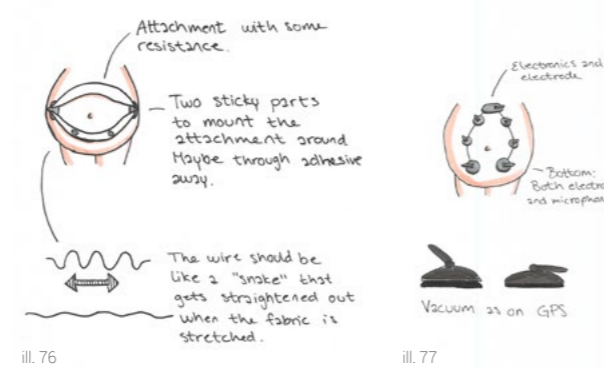 Attachment with some
resistance.
Two sticky parts
to mount the
attachment around
Maybe through adhesive
away.
The wire should be
like a "snake" that
gets straightened out
when the fabric is
stretched.
ill. 76
Electronics and
electrode
Bottom:
Both electro
and microphon
Vacuum as on GPS
ill. 77